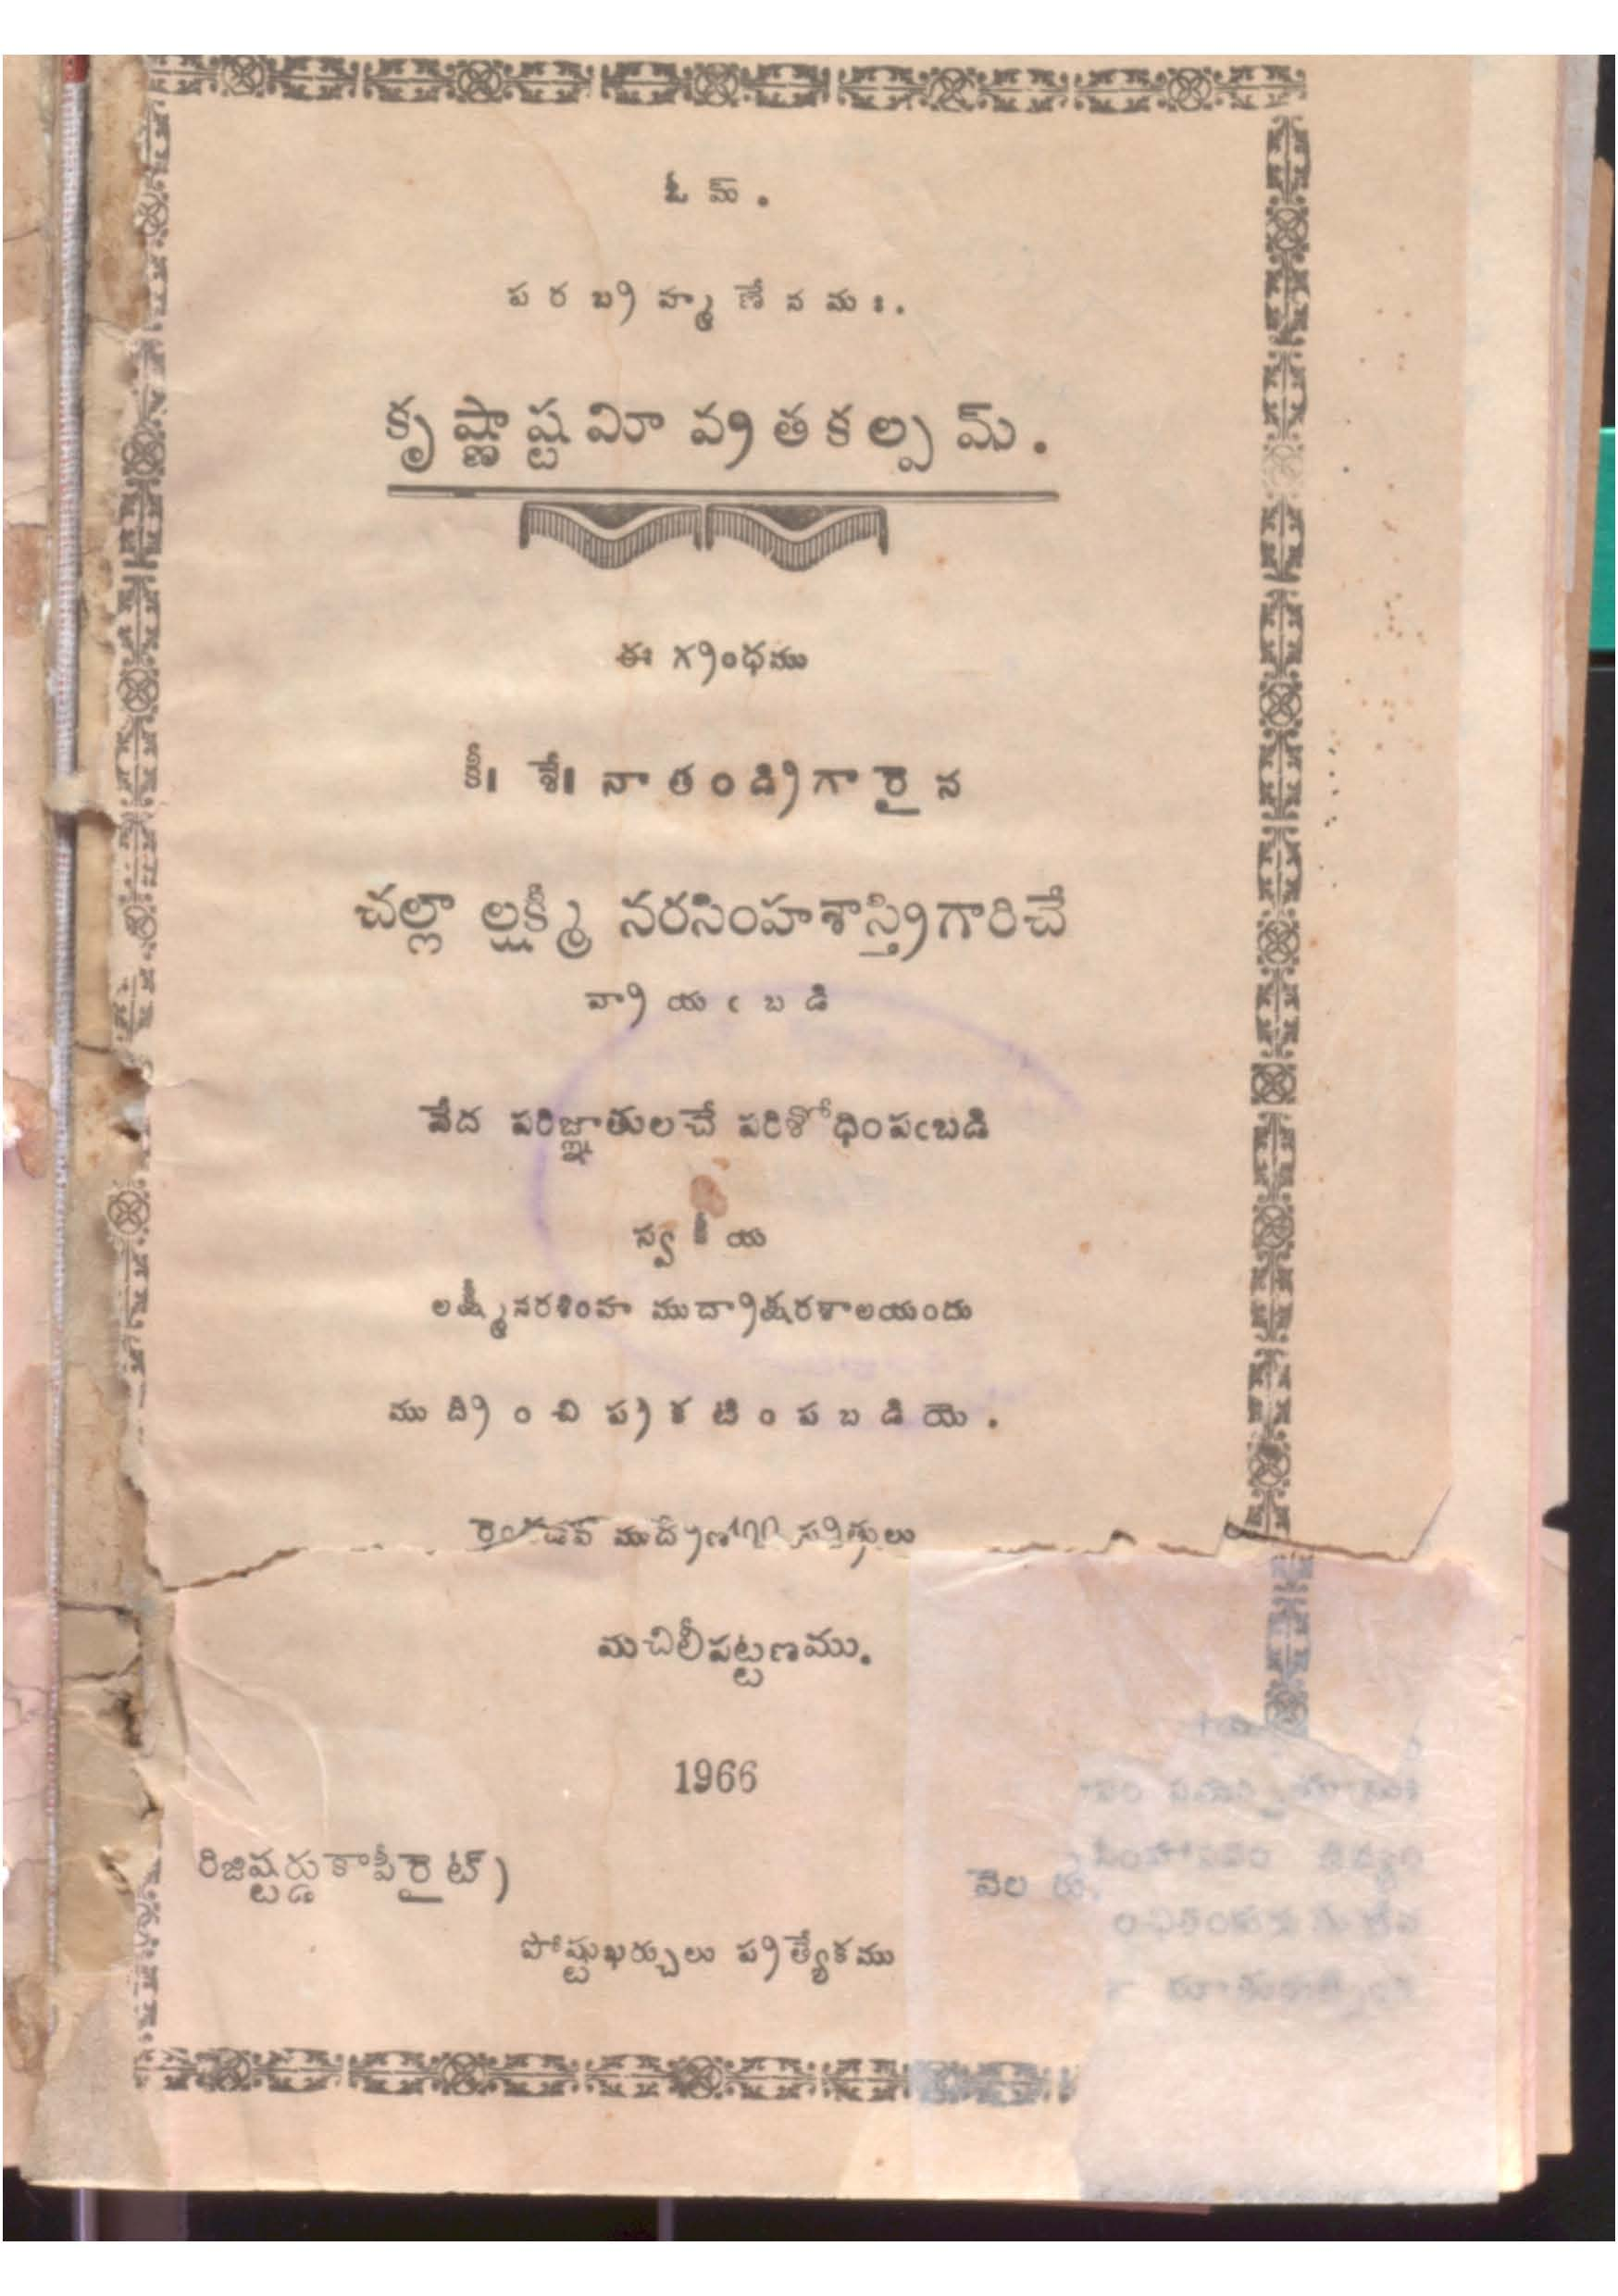 ఓమ్.
పరబ్రహ్మణేనమః.
కృష్ణాష్టమీ వ్రతకల్పమ్.
ఈ గ్రంధము
కీ॥ శే॥ నాతండ్రిగారైన
చల్లా లక్ష్మీ నరసింహశాస్త్రిగారిచే
వ్రాయఁబడి
వేద పరిజ్ఞాతులచే పరిశోధింపఁబడి
స్వకీయ
లక్ష్మీనరశింహ ముద్రాక్షరశాలయందు
ముద్రించి ప్రకటింపబడియె.
ముద్రణ ప్రతులు
మచిలీపట్టణము.
1966
రిజిష్టర్డుకాపీరైట్)
వెల రు.
పోష్టుఖర్చులు ప్రత్యేకము